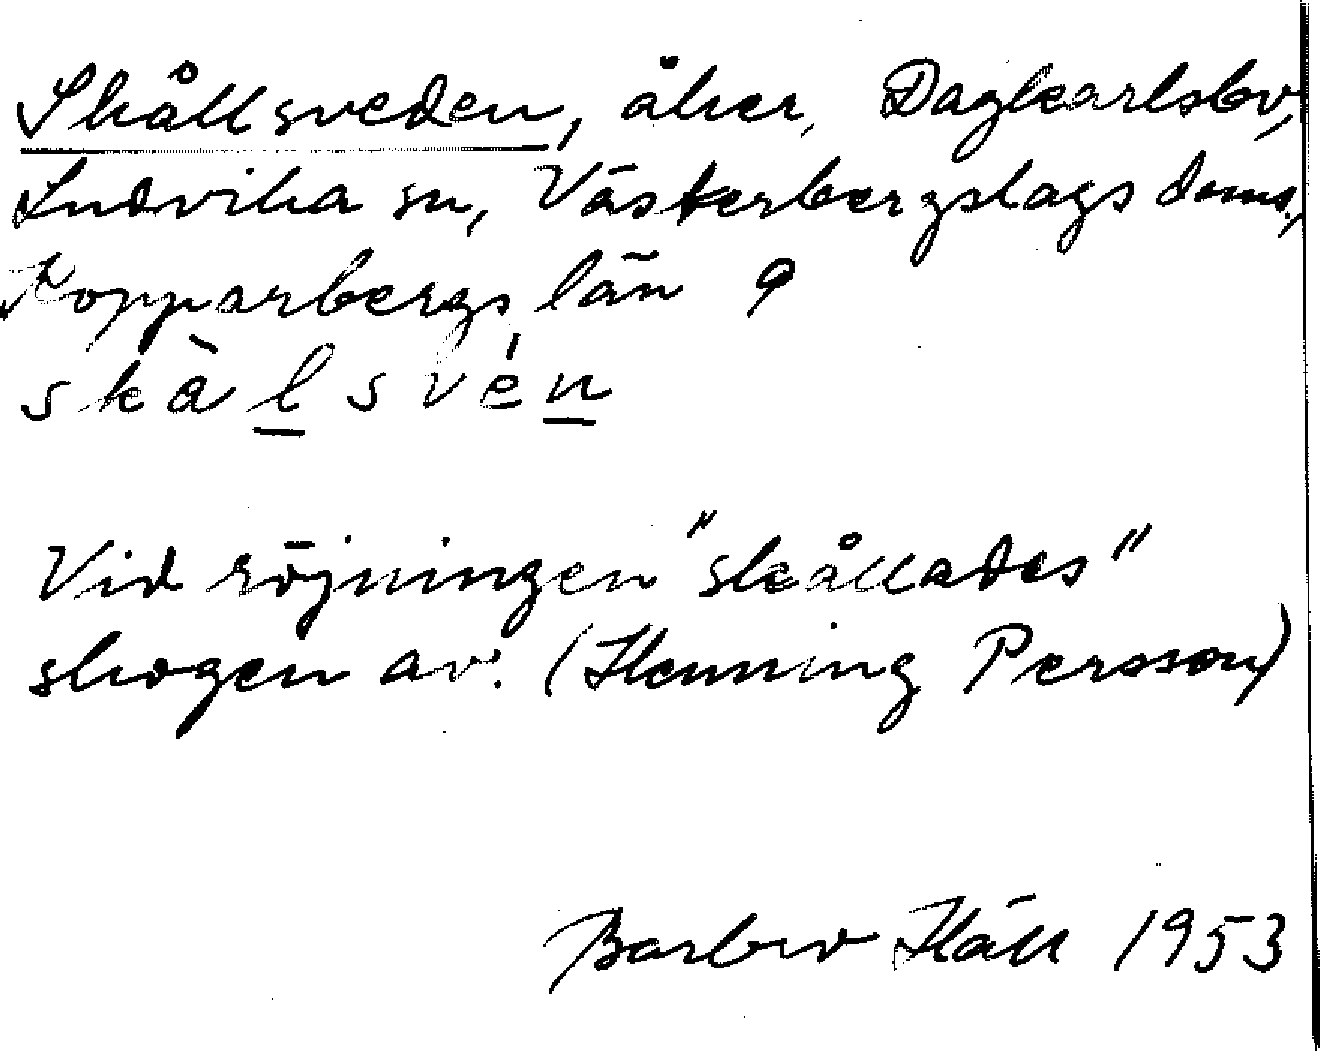 Skållsveden, åker, Dagkarlsbo,
Ludvika sn, Västerbergslags doms.,
Kopparbergs län 9
skàlsvén
Vid röjningen "skållades"
skogen av. (Henning Persson)
Barbro Häll 1953